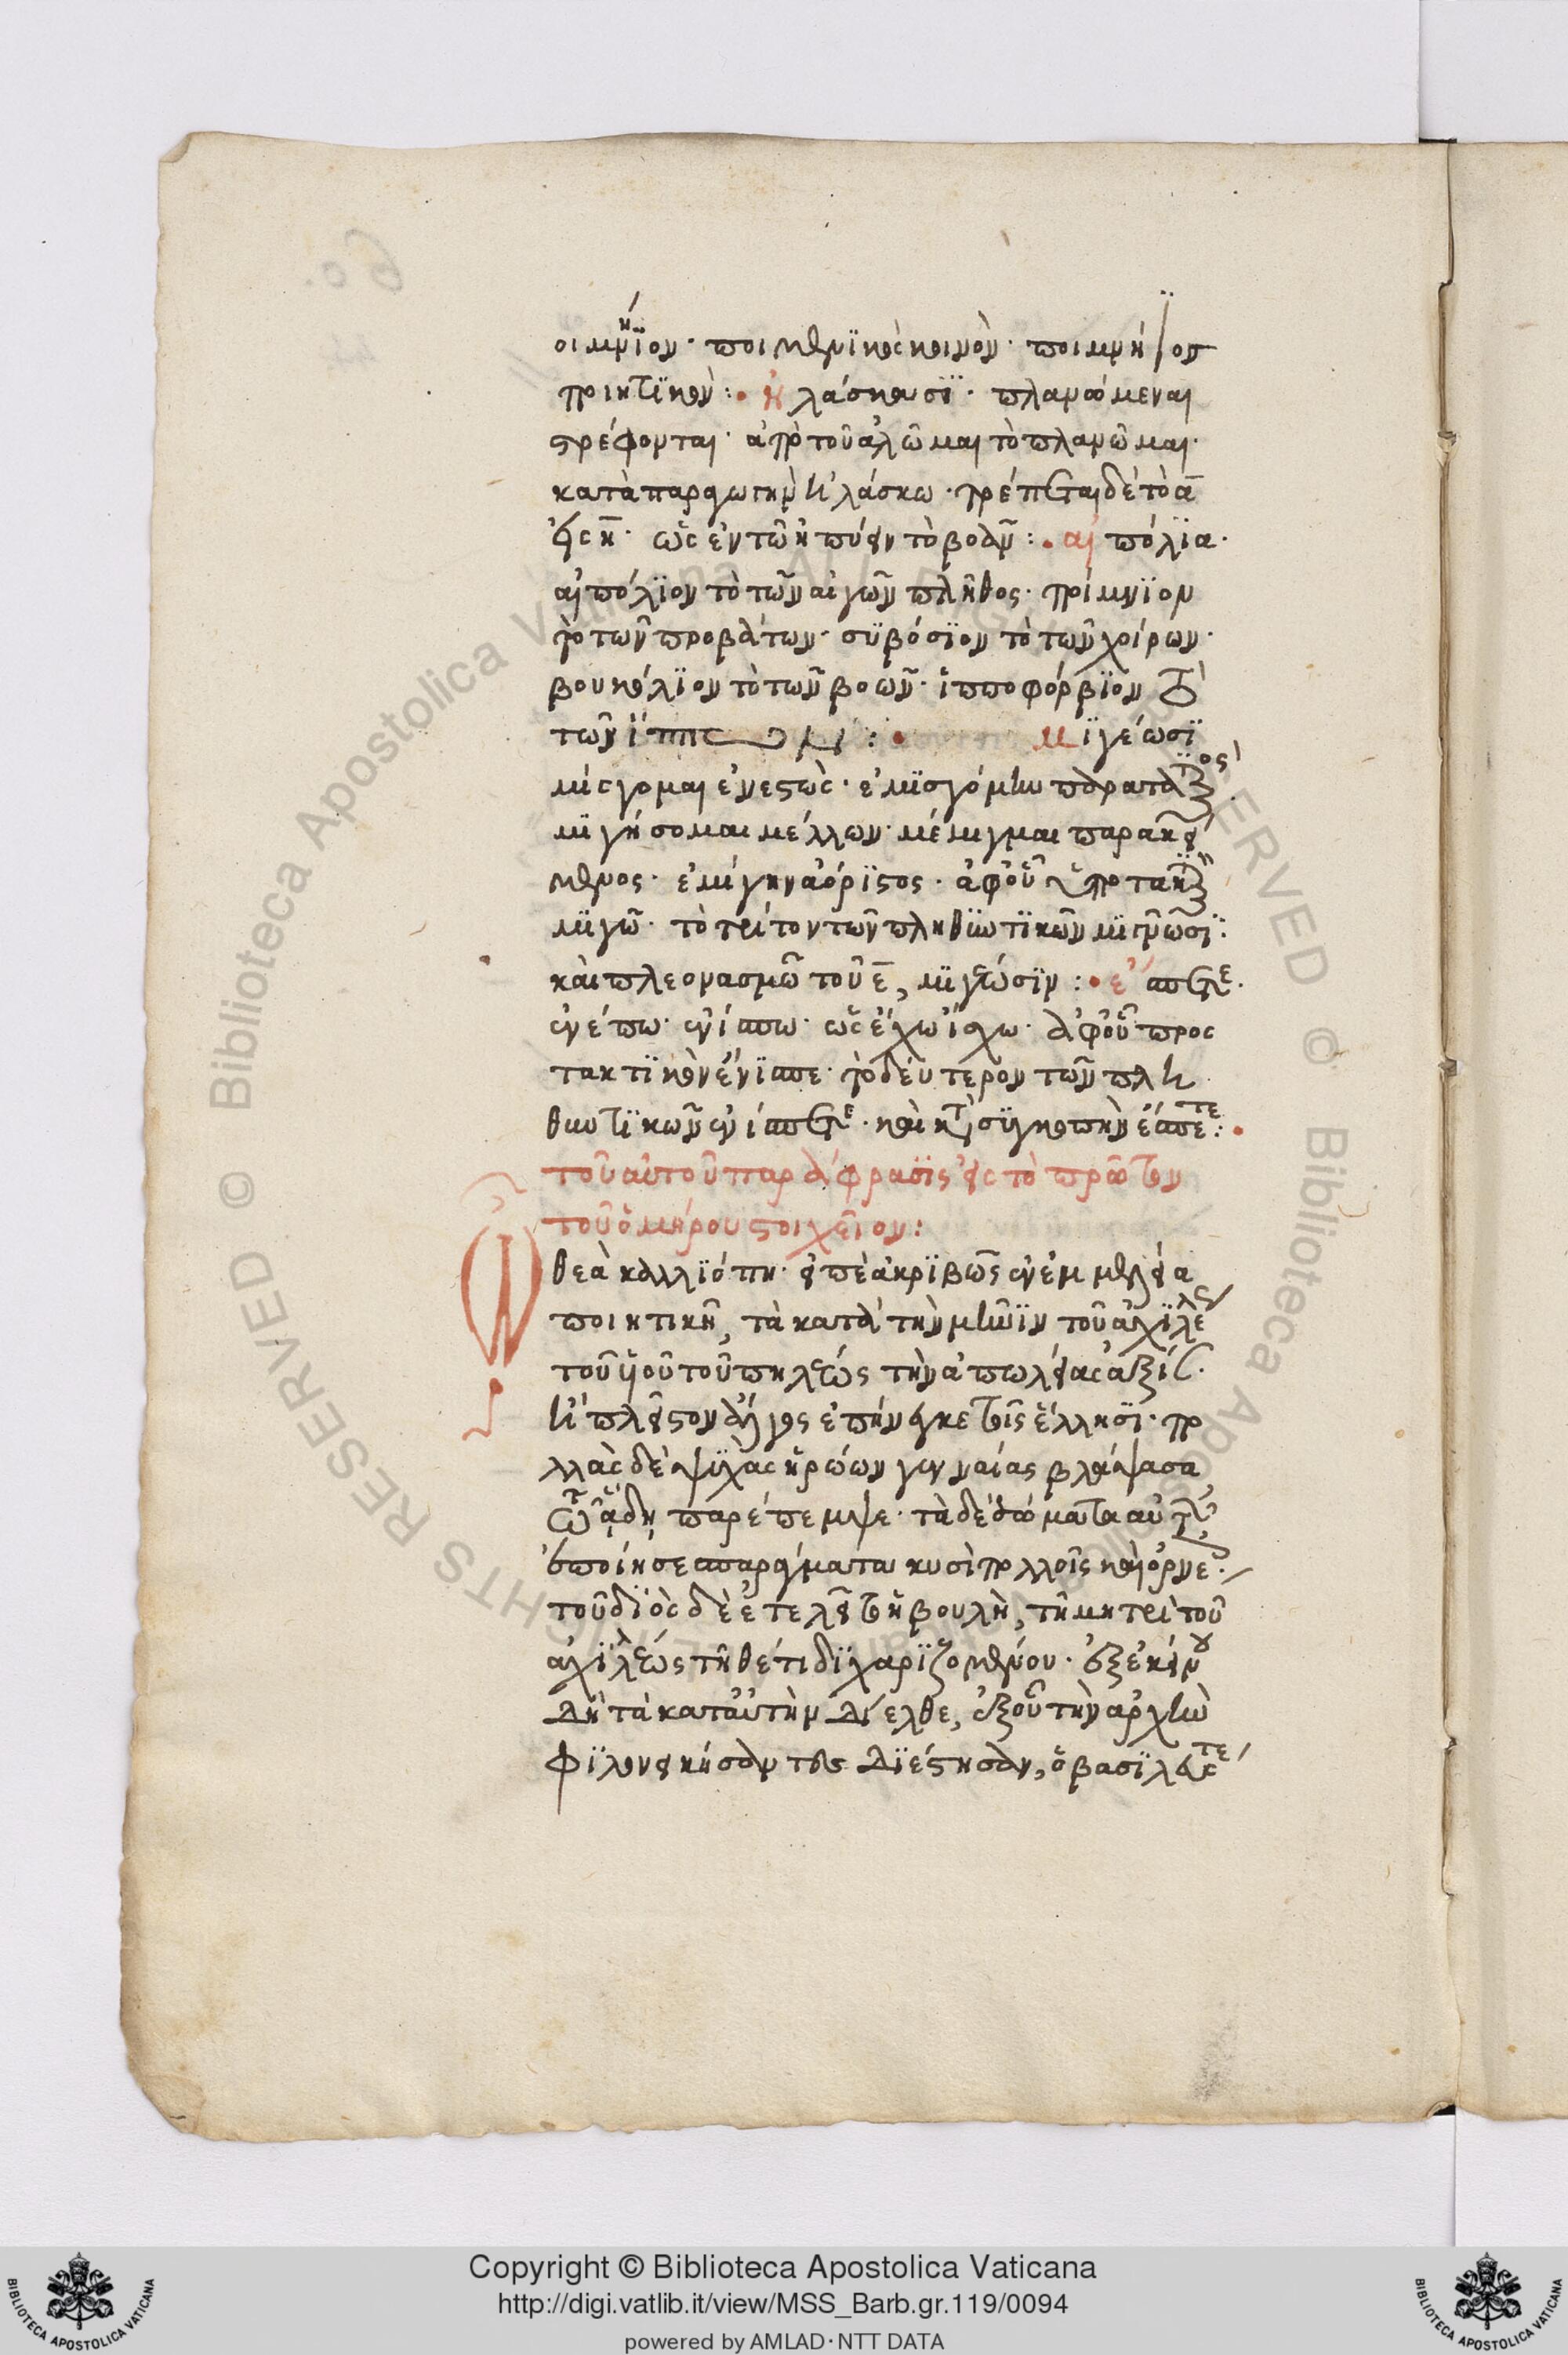 οιμνήϊον· ποιμενϊκὸς κοινὸν· ποιμνήϊον
ποιητϊκὸν:· ἠλάσκουσϊ· πλανώμεναι
στρέφονται· ἀπὸ τοῦ ἀλῶμαι τὸ πλανῶμαι·
κατὰ παραγωγὴν ἠλάσκω· τρέπεται δὲ τὸ α
εἰς η· ὡς ἐν τῶ ἠπύειν τὸ βοᾶν:· αἰπόλϊα·
αἰπόλϊον τὸ τῶν αἰγῶν πλῆθος· ποίμνϊον
τὸ τῶν προβάτων· συβόσϊον τὸ τῶν χοίρων·
βουκόλϊον τὸ τῶν βοῶν· ἱπποφόρβϊον τὸ
τῶν ἵππων:· μϊγέωσϊ
μίσγομαι ἐνεστὼς· ἐμϊσγόμην παρατατϊκός·
μϊγήσομαι μέλλων· μέμιγμαι παρακεί
μενος· ἐμίγην ἀόρϊστος· ἀφ' οὗ ὑποτακτϊκὸν
μϊγῶ· τὸ τρίτον τῶν πληθϋντϊκῶν μϊγῶσϊ·
καὶ πλεονασμῶ τοῦ ε, μϊγέωσϊν:· ἔσπετε·
ἐνέπω· ἐνίσπω· ὡς ἔχω ἴσχω· ἀφ' οὗ προσ
τακτϊκὸν ἔνϊσπε· τὸ δεύτερον τῶν πλη
θυντϊκῶν ἐνίσπετε· καὶ κατὰ σϋγκοπὴν ἔσπετε:·
τοῦ αὐτοῦ παράφρασϊς εἰς τὸ πρῶτον
τοῦ ὁμήρου στοιχεῖον:
Ὦ θεὰ καλλϊόπη· εἰπὲ ἀκρϊβῶς ἐν ἐμμελεία
ποιητικῆ, τὰ κατὰ τὴν μῆνϊν τοῦ ἀχϊλέως
τοῦ υἱοῦ τοῦ πηλέως τὴν ἀπωλείας ἀξίαν·
ἣ πλεῖστον ἄλγος ἐπήνεγκε τοῖς ἕλλησϊ· πο
λλὰς δὲ ψϋχὰς ἡρώων γενναίας βλάψασα
τῶ ἅδη παρέπεμψε· τὰ δὲ σώματα αὐτῶν
ἐποίησε σπαράγματα κυσὶ πολλοῖς καὶ ὀρνέοις·
τοῦ δϊὸς δὲ ἐτελεῖτο ἡ βουλὴ, τῆ μητρὶ τοῦ
ἀχϊλέως τῆ θέτιδϊ χαρϊζομένου· ἐξ ἐκείνου
δὴ τὰ κατ' αὐτὴν δίελθε, ἐξ οὗ τὴν ἀρχὴν
φϊλονεικήσαντες δϊέστησαν, ὁ βασϊλεύς τε